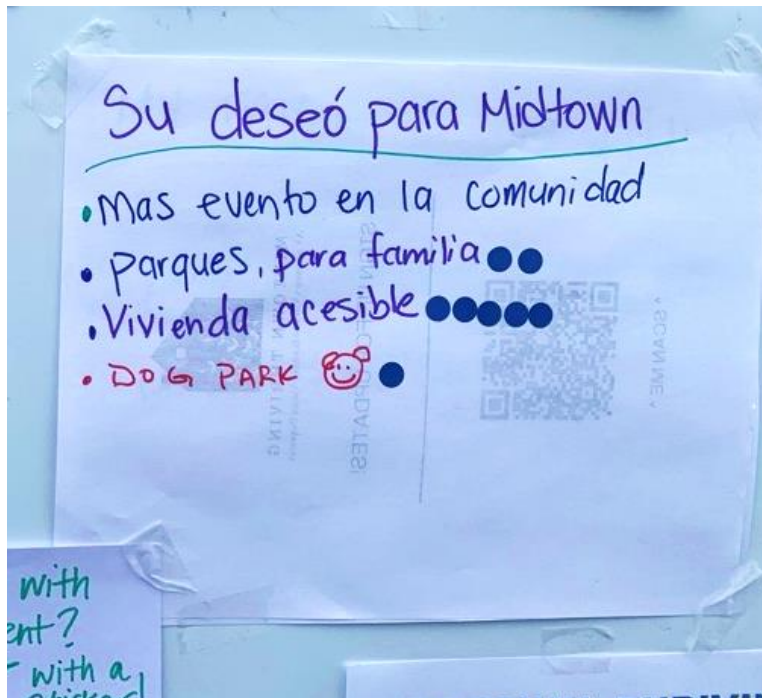 Su deseó para Midtown
• Mas evento en la comunidad
• Parques, para familia
• Vivienda acesible
• DOG PARK
SCAN ME
with
ent?
with a